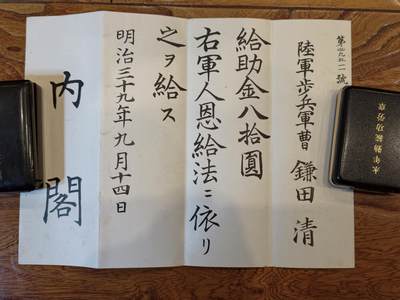 號
陸軍歩兵軍曹 鎌田 清
給助金八拾圓
右軍人恩給法ニ依リ
之ヲ給ス
明治三十九年九月十四日
内閣
永年勤続功労章